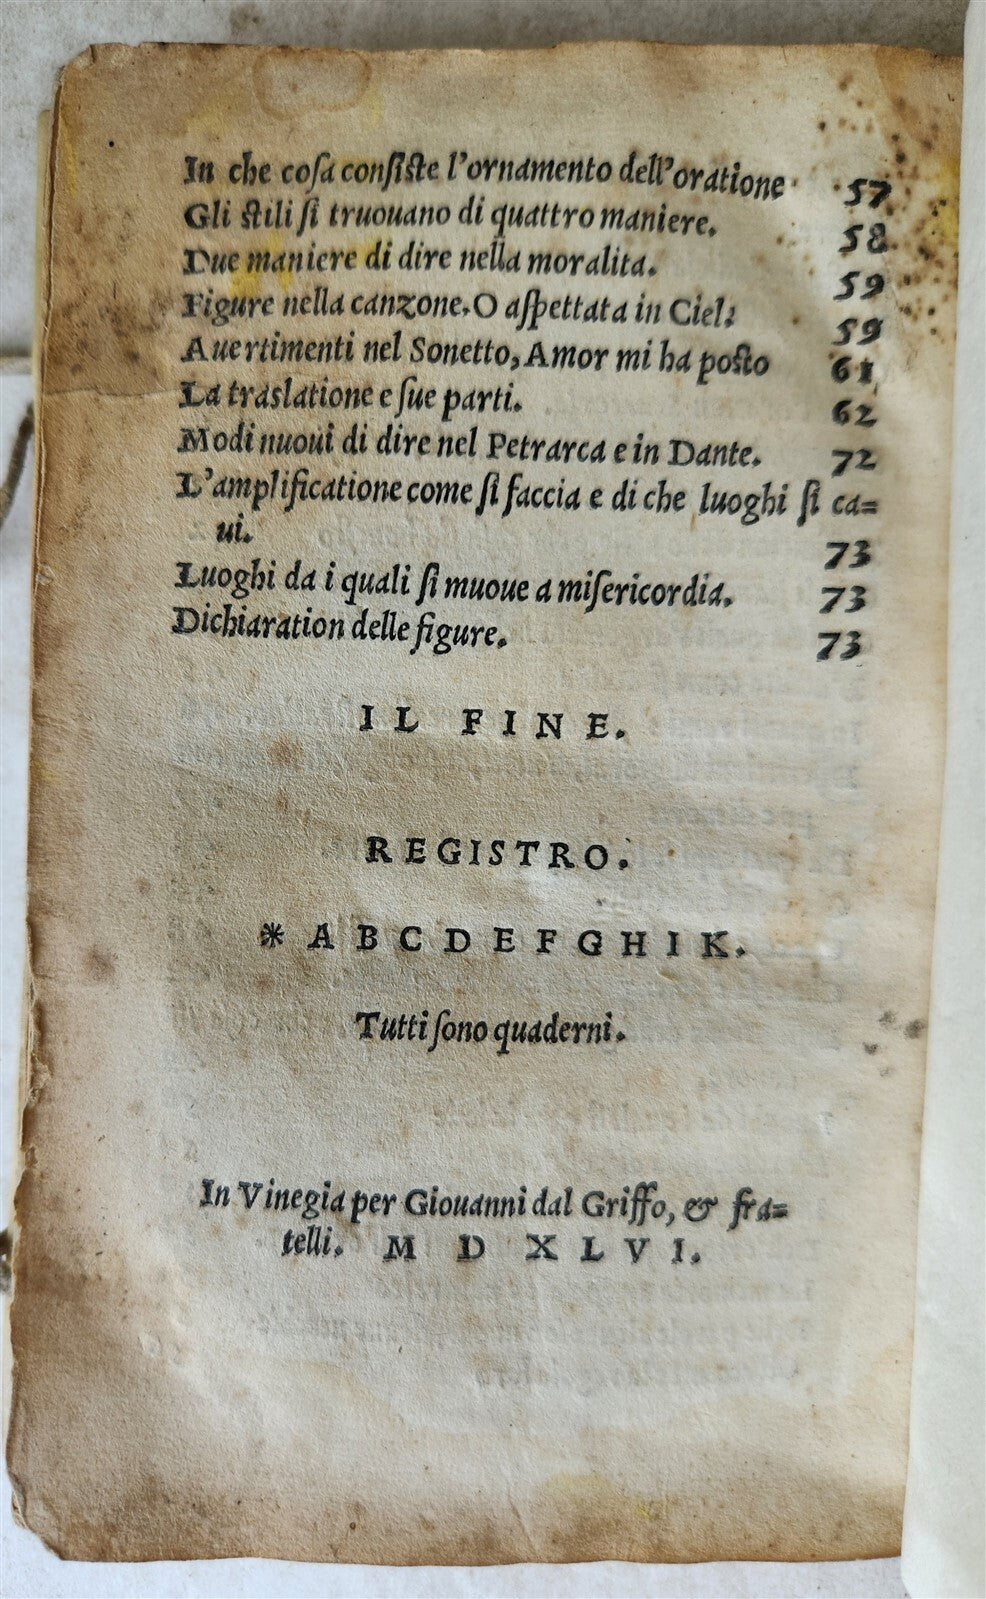 In che coſa conſiste l'ornamento dell'oratione 57
Gli stili ſi truouano di quattro maniere. 58
Due maniere di dire nella moralita. 59
Figure nella canzone. O aſpettata in Ciel: 59
Auertimenti nel Sonetto, Amor mi ha posto 61
La traslatione e ſue parti. 62
Modi nuoui di dire nel Petrarca e in Dante. 72
L'amplificatione come ſi faccia e di che luoghi ſi ca=
ui. 73
Luoghi da i quali ſi muoue a miſericordia. 73
Dichiaration delle figure. 73
IL FINE.
REGISTRO.
* A B C D E F G H I K.
Tutti ſono quaderni.
In Vinegia per Giouanni dal Griffo, & fra=
telli. M D XLVI.